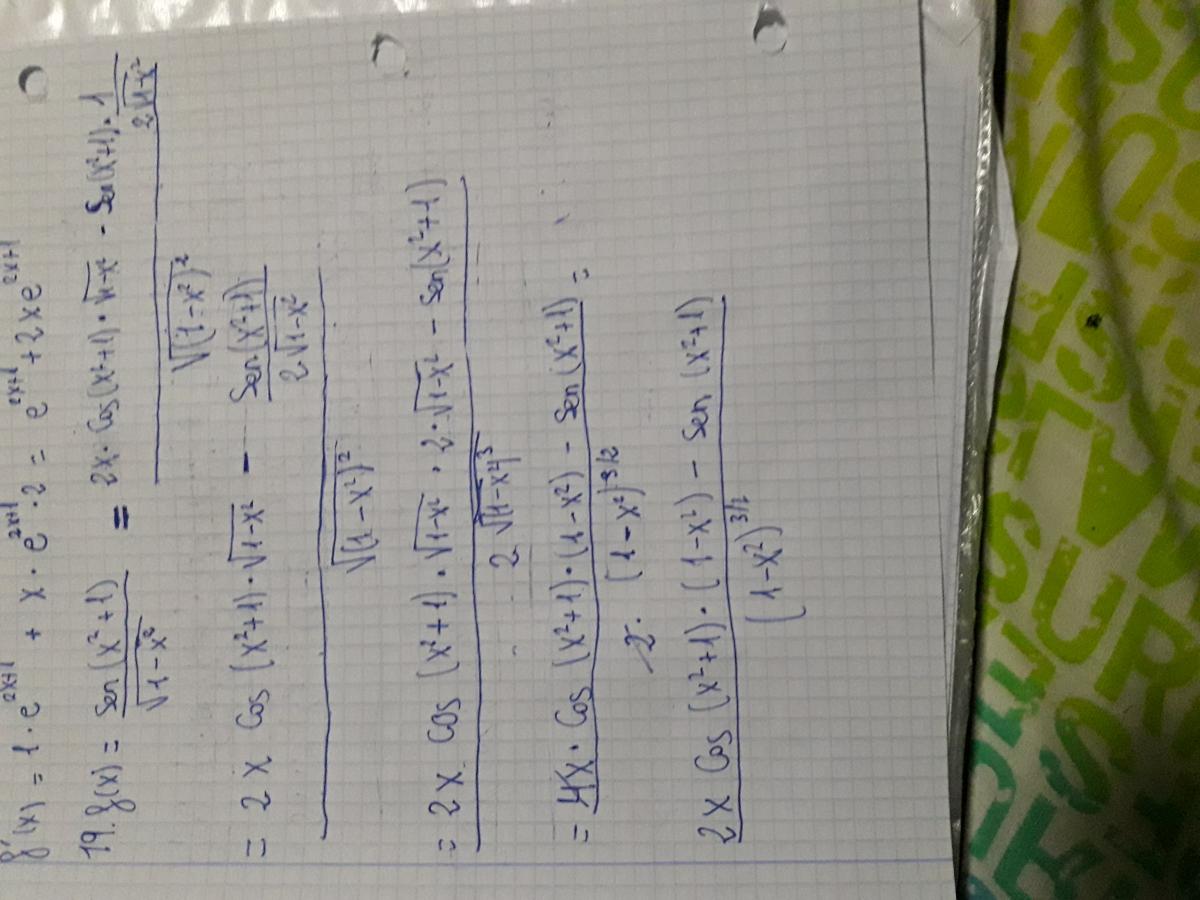 f'(x) = 1 · e^{2x+1} + x · e^{2x+1} · 2 = e^{2x+1} + 2xe^{2x+1}
19. f(x) = Sen(x²+1) / √1-x² = 2x · Cos(x²+1) · √1-x² - Sen(x²+1) · 1 / 2√1-x²
√(1-x²)²
= 2x Cos (x²+1) · √1-x² - Sen(x²+1) / 2√1-x²
√(1-x²)²
= 2x Cos (x²+1) · √1-x² · 2 · √1-x² - Sen(x²+1)
2 √(1-x²)³
= 4x · Cos (x²+1) · (1-x²) - Sen (x²+1) =
2 · (1-x²)^{3/2}
2x Cos (x²+1) · (1-x²) - Sen (x²+1)
(1-x²)^{3/2}